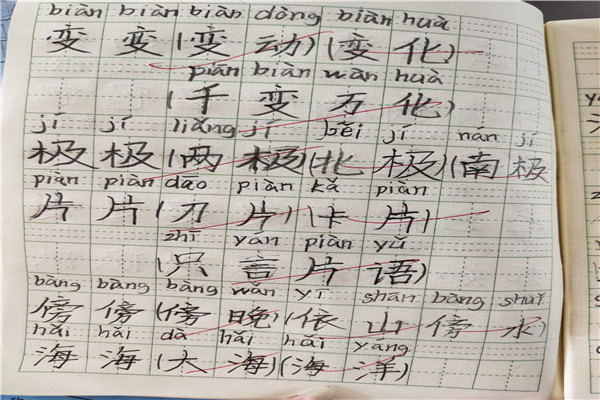 biàn biàn biàn dòng biàn huà
变 变 (变 动) (变 化)
piān biàn wàn huà
(千 变 万 化)
jí jí liǎng jí běi jí nán jí
极 极 (两 极) (北 极) (南 极
piàn piàn dāo piàn kǎ piàn
片 片 (刀 片) (卡 片)
zhī yán piàn yǔ
(只 言 片 语)
bàng bàng bàng wǎn yī shān bàng shuǐ
傍 傍 (傍 晚) (依 山 傍 水)
hǎi hǎi dà hǎi hǎi yáng
海 海 (大 海) (海 洋)